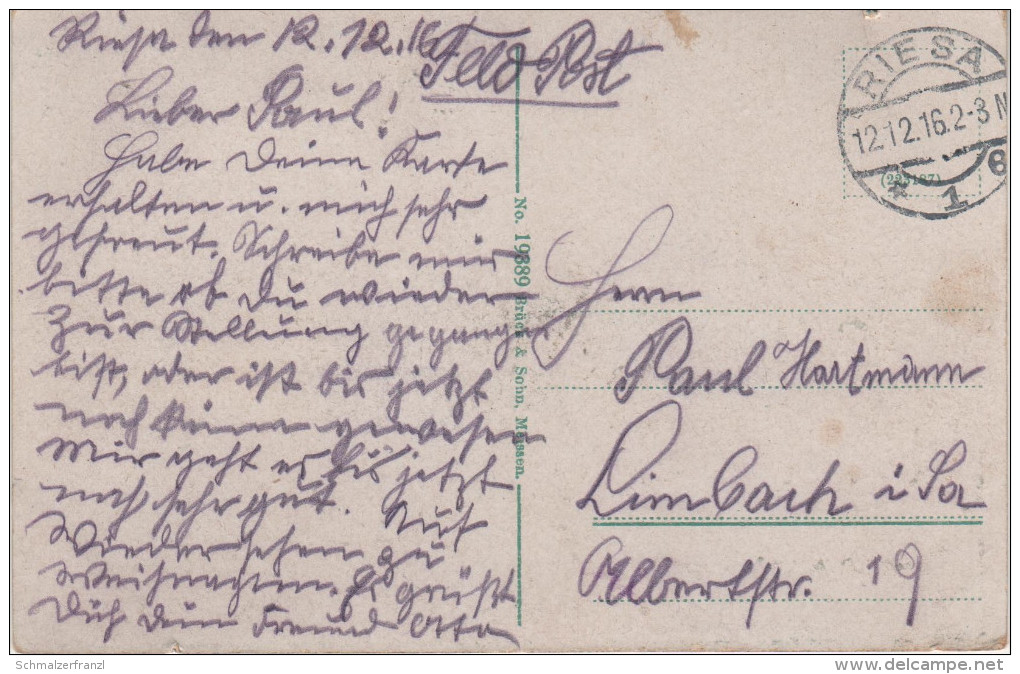 Riesa den 12.12.16
Feld Post
Lieber Paul!
Habe Deine Karte
erhalten u. mich sehr
gefreut. Schreibe mir
bitte ob Du wieder
zur Stellung gegangen
bist, oder ist bis jetzt
noch keine gewesen
Mir geht es bis jetzt
noch sehr gut. Auf
Wiedersehen zu
Weihnachten. Es grüßt
Dich dein Freund Otto
No. 19889 Brück & Sohn, Meissen.
RIESA
12.12.16.2-3 N
* 1
(223187)
Herrn
Paul Hartmann
Limbach i Sa
Albertstr. 19
Schmalzerfranzl
delcampe.net